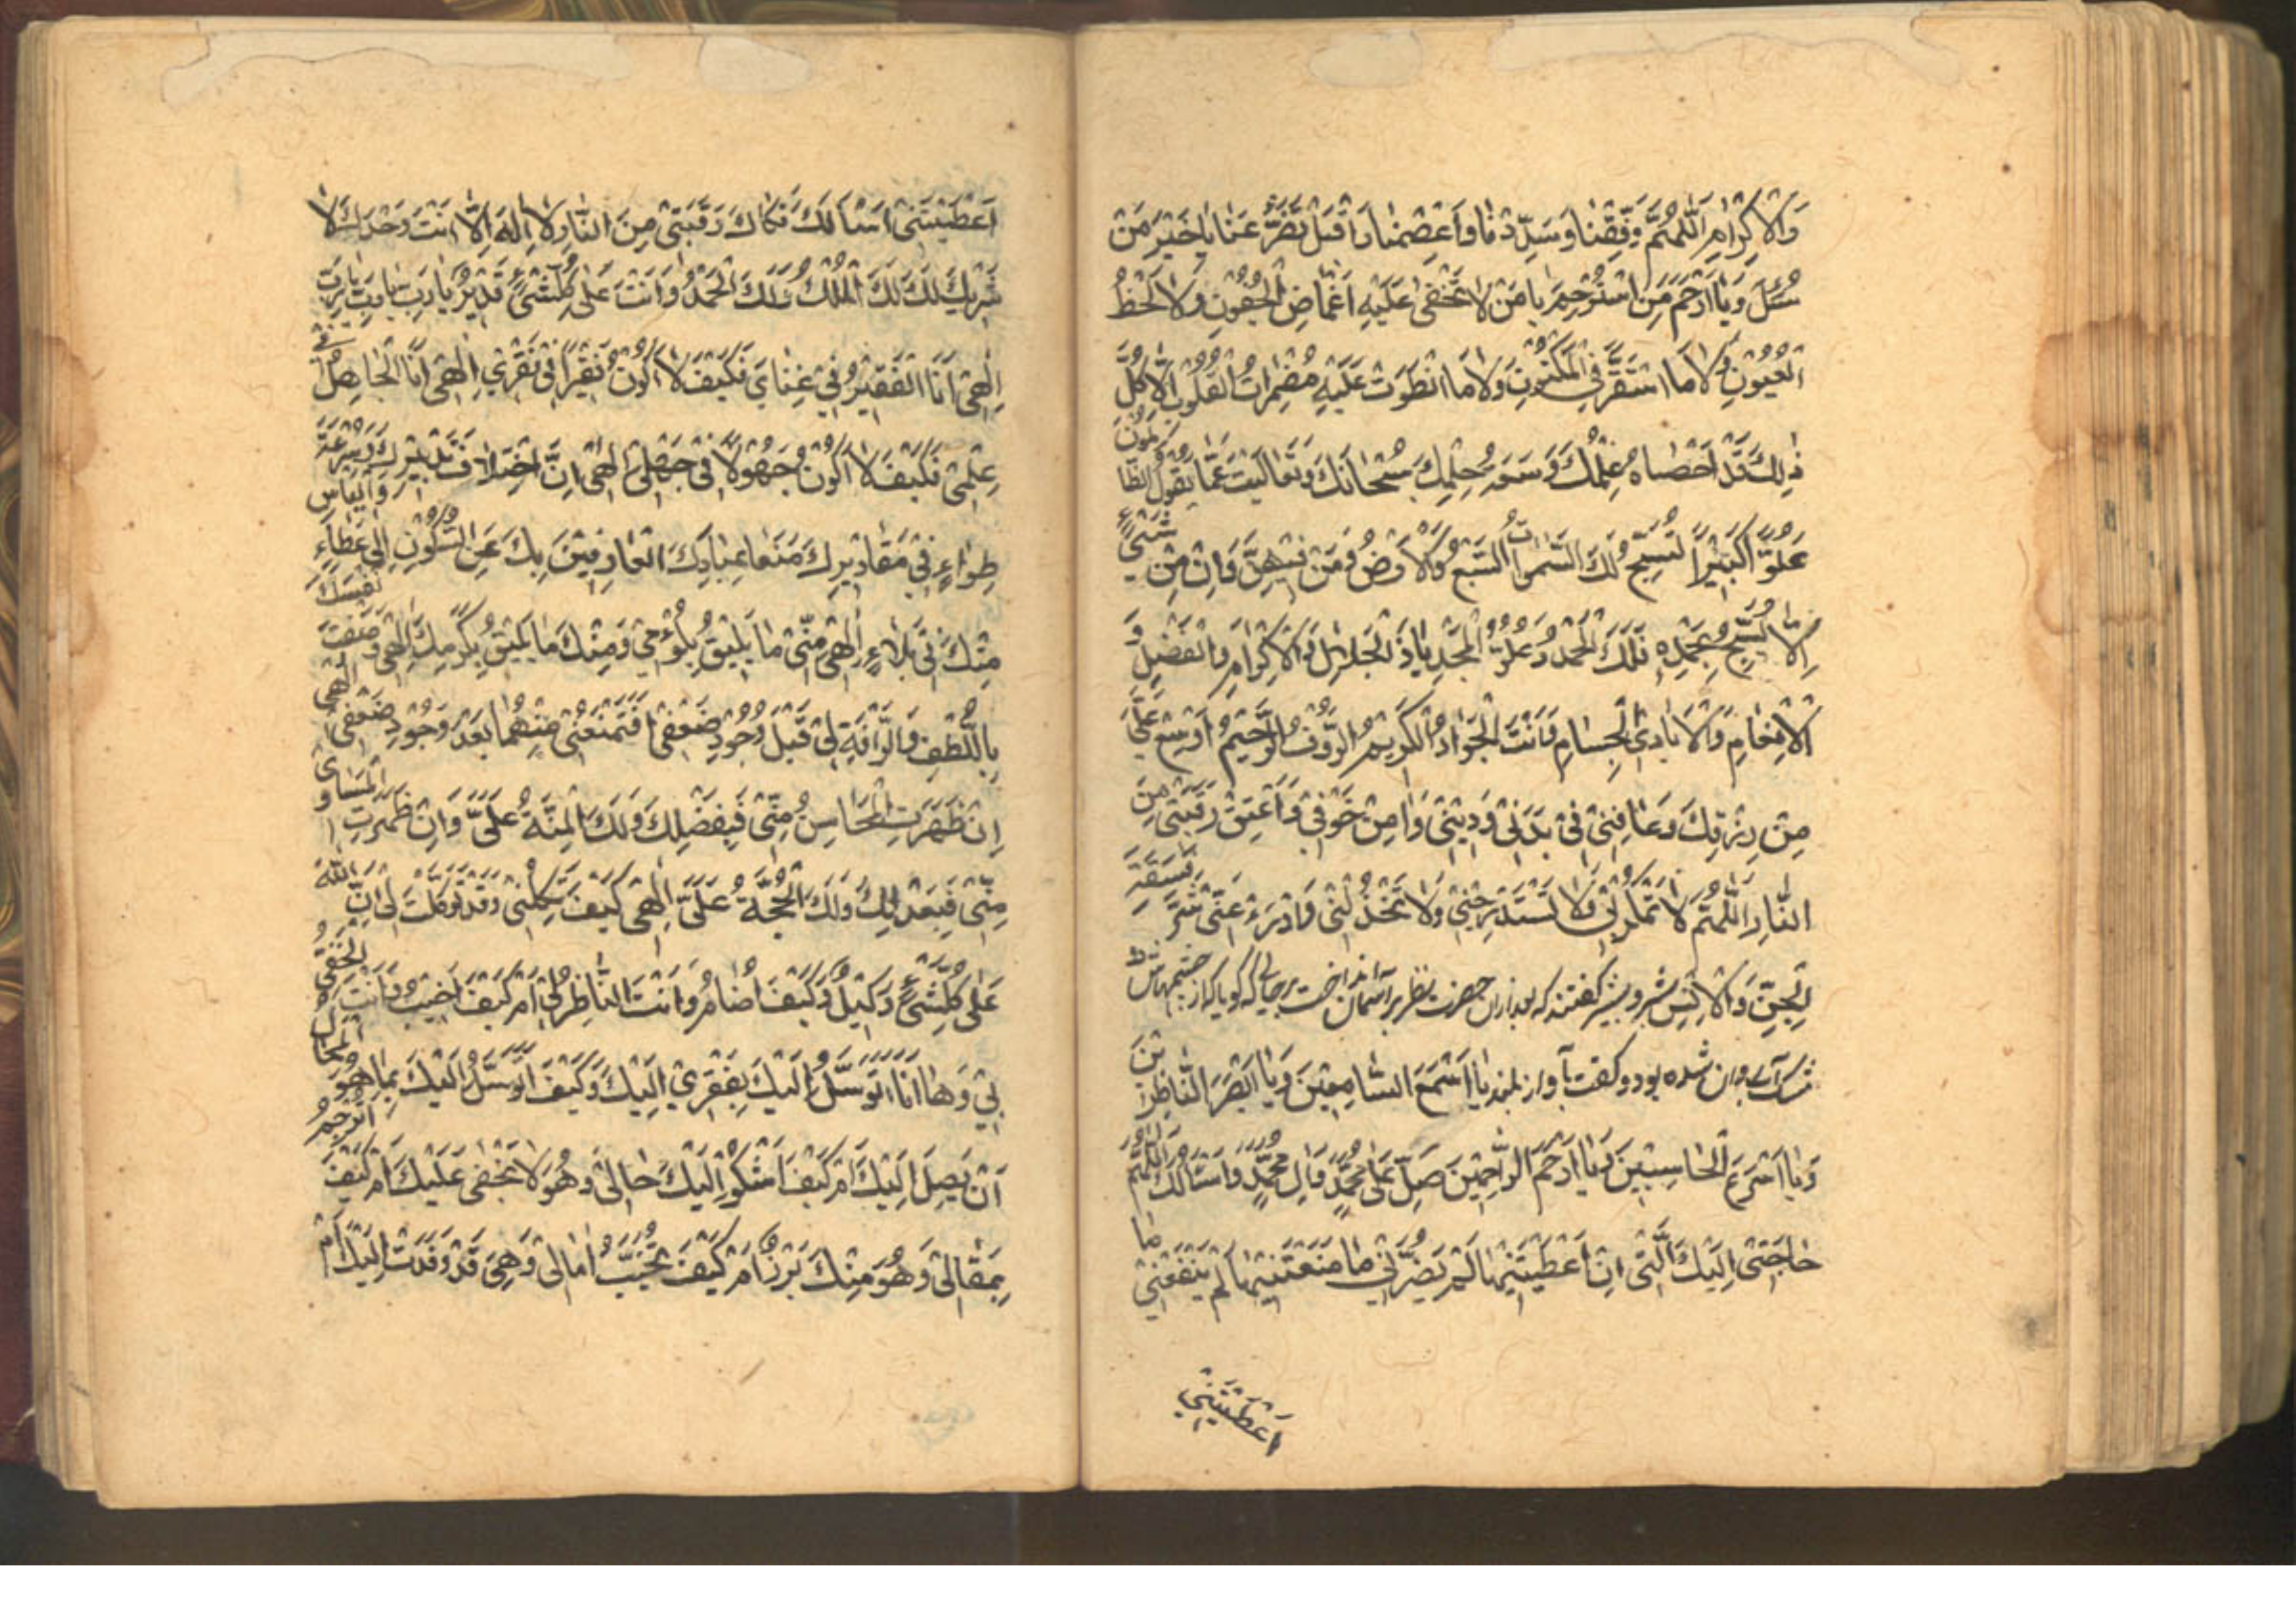 وَالْاِكْرامِ اَللّهُمَّ وَفِّقْنا وَسَدِّدْنا وَاعْصِمْنا وَاقْبَلْ تَضَرُّعَنا يا خَيْرَ مَنْ
سُئِلَ وَيا اَرْحَمَ مَنِ اسْتُرْحِمَ يا مَنْ لا يَخْفى عَلَيْهِ اِغْماضُ الْجُفُونِ وَلا لَحْظُ
الْعُيُونِ وَلا مَا اسْتَقَرَّ فِي الْمَكْنُونِ وَلا مَا انْطَوَتْ عَلَيْهِ مُضْمِراتُ الْقُلُوبِ اَلا كُلُّ
ذلِكَ قَدْ اَحْصاهُ عِلْمُكَ وَسَعَهُ حِلْمُكَ سُبْحانَكَ وَتَعالَيْتَ عَمَّا يَقُولُ الظَّالِمُونَ
عُلُوًّا كَبيرًا تُسَبِّحُ لَكَ السَّمواتُ السَّبْعُ وَالْاَرْضُ وَمَنْ فيهِنَّ وَاِنْ مِنْ شَيْءٍ
اِلَّا يُسَبِّحُ بِحَمْدِهِ فَلَكَ الْحَمْدُ وَعُلُوُّ الْمَجْدِ يا ذَا الْجَلالِ وَالْاِكْرامِ وَالْفَضْلِ وَ
الْاِنْعامِ وَالْاَيادِي الْجِسامِ وَاَنْتَ الْجَوادُ الْكَريمُ الرَّؤُفُ الرَّحيمُ اَوْسِعْ عَلَيَّ
مِنْ رِزْقِكَ وَعافِني في بَدَني وَديني وَامِنْ خَوْفي وَاَعْتِقْ رَقَبَتي مِنَ
النَّارِ اَللّهُمَّ لا تَمْكُرْ بي وَلا تَسْتَدْرِجْني وَلا تَخْذُلْني وَادْرَءْ عَنّي شَرَّ فَسَقَةِ
الْجِنِّ وَالْاِنْسِ بشر و بشير كفتند كه بعد ازان حضرت نظر بر آسمان انداخت برحالى كه كويا كه از چشمهاش
مشك آب روان شده بود و كفت بآواز بلند يا اَسْمَعَ السَّامِعينَ وَيا اَبْصَرَ النَّاظِرينَ
وَيا اَسْرَعَ الْحاسِبينَ وَيا اَرْحَمَ الرَّاحِمينَ صَلِّ عَلى مُحَمَّدٍ وَالِ مُحَمَّدٍ وَاَسْأَلُكَ اللّهُمَّ
حاجَتي اِلَيْكَ الَّتي اِنْ اَعْطَيْتَنيها لَمْ يَضُرَّني ما مَنَعْتَنيها لَمْ يَنْفَعْني ما
اَعْطَيْتَني
اَعْطَيْتَني اَسْأَلُكَ فَكاكَ رَقَبَتي مِنَ النَّارِ لا اِلهَ اِلَّا اَنْتَ وَحْدَكَ لا
شَريكَ لَكَ لَكَ الْمُلْكُ وَلَكَ الْحَمْدُ وَاَنْتَ عَلى كُلِّ شَيْءٍ قَديرٌ يا رَبِّ يا رَبِّ يا رَبِّ
اِلهي اَنَا الْفَقيرُ في غِنايَ فَكَيْفَ لا اَكُونُ فَقيرًا في فَقْري اِلهي اَنَا الْجاهِلُ في
عِلْمي فَكَيْفَ لا اَكُونُ جَهُولًا في جَهْلي اِلهي اِنَّ اخْتِلافَ تَدْبيرِكَ وَسُرْعَةَ
طِواءِ في مَقاديرِكَ مَنَعا عِبادَكَ الْعارِفينَ بِكَ عَنِ السُّكُونِ اِلى عَطاءٍ وَالْيَأسِ
مِنْكَ في بَلاءٍ اِلهي مِنّي ما يَليقُ بِلُؤْمي وَمِنْكَ ما يَليقُ بِكَرَمِكَ اِلهي وَصَفْتَ نَفْسَكَ
بِاللُّطْفِ وَالرَّأْفَةِ لي قَبْلَ وُجُودِ ضَعْفي اَفَتَمْنَعُني مِنْهُما بَعْدَ وُجُودِ ضَعْفي اِلهي
اِنْ ظَهَرَتِ الْمَحاسِنُ مِنّي فَبِفَضْلِكَ وَلَكَ الْمِنَّةُ عَلَيَّ وَاِنْ ظَهَرَتِ الْمَساوى
مِنّي فَبِعَدْلِكَ وَلَكَ الْحُجَّةُ عَلَيَّ اِلهي كَيْفَ تَكِلُني وَقَدْ تَوَكَّلْتَ لي اِنَّ اللّهَ
عَلى كُلِّ شَيْءٍ وَكيلٌ وَكَيْفَ اُضامُ وَاَنْتَ النَّاظِرُ لي اَمْ كَيْفَ اَخيبُ وَاَنْتَ الْحَفِيُّ
بي وَها اَنَا اَتَوَسَّلُ اِلَيْكَ بِفَقْري اِلَيْكَ وَكَيْفَ اَتَوَسَّلُ اِلَيْكَ بِما هُوَ مَحالٌ
اَنْ يَصِلَ اِلَيْكَ اَمْ كَيْفَ اَشْكُو اِلَيْكَ حالي وَهُوَ لا يَخْفى عَلَيْكَ اَمْ كَيْفَ اُتَرْجِمُ
بِمَقالي وَهُوَ مِنْكَ بَرَزَ اَمْ كَيْفَ تُخَيِّبُ امالي وَهِيَ قَدْ وَفَدَتْ اِلَيْكَ اَمْ